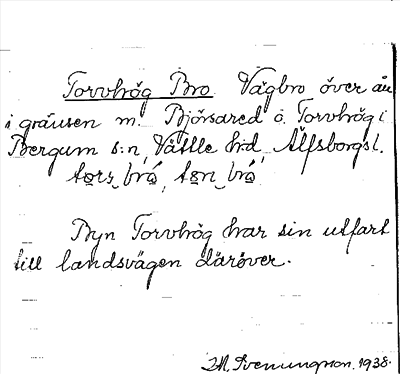 Torvhög Bro Vägbro över ån
i gränsen m. Björsared o. Torvhög i
Bergum s:n, Vättle h:d, Älfsborgs l.
Byn Torvhög har sin utfart
till landsvägen däröver.
1938.